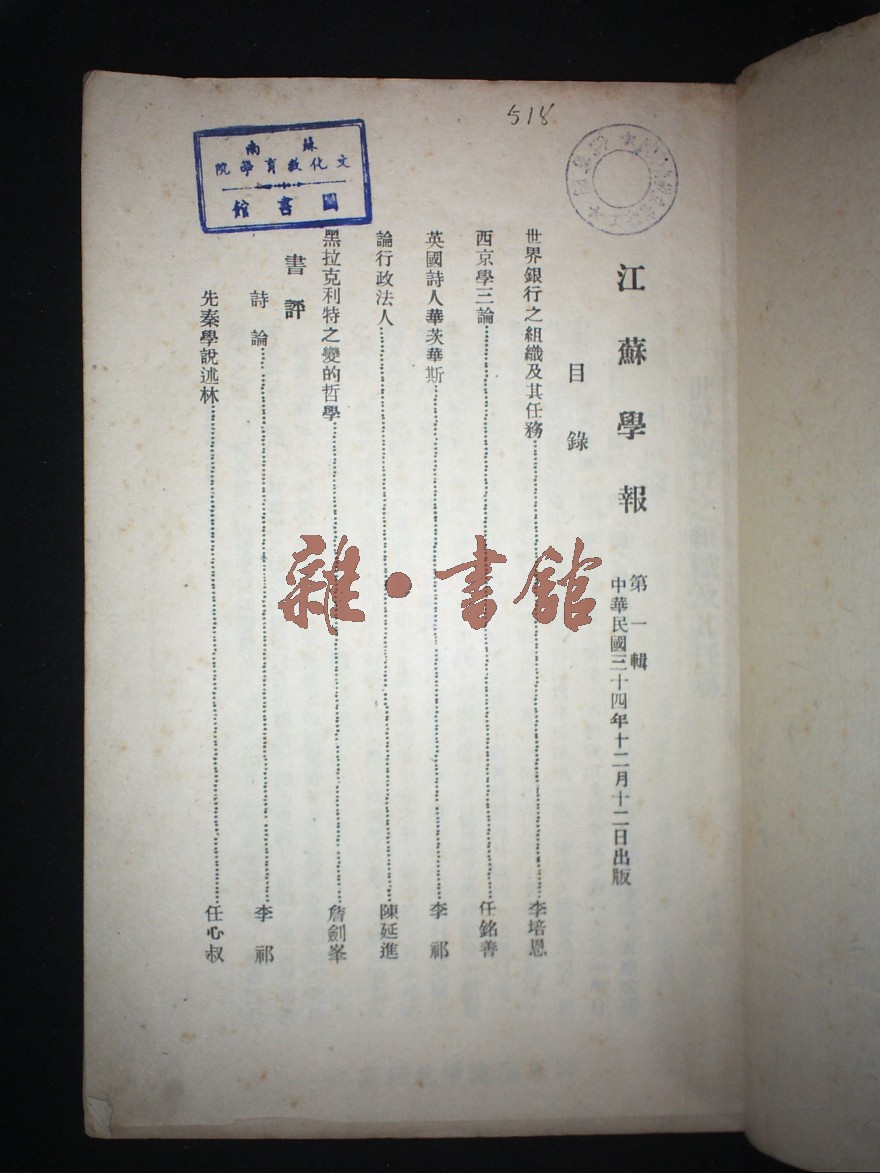 518
江蘇學報
第一輯
中華民國三十四年十二月十二日出版
目錄
世界銀行之組織及其任務……李培恩
西京學三論……任銘善
英國詩人華茨華斯……李祁
論行政法人……陳延進
黑拉克利特之變的哲學……詹劍峯
書評
詩論……李祁
先秦學說述林……任心叔
蘇南
文化教育學院
圖書館
雜·書館